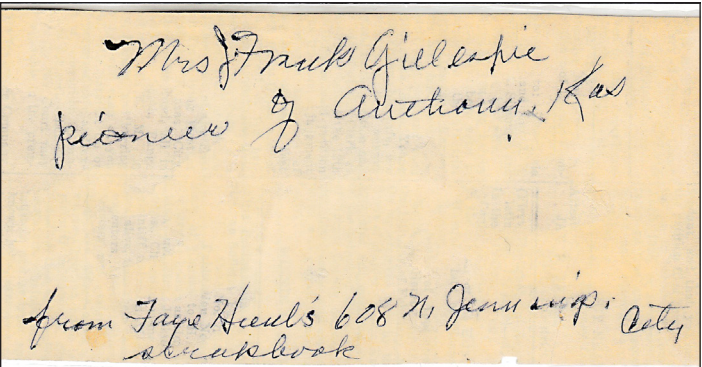 Mrs Frank Gillespie
pioneer of Anthony, Kas
from Faye 608 N. Jennings. City
scrapbook